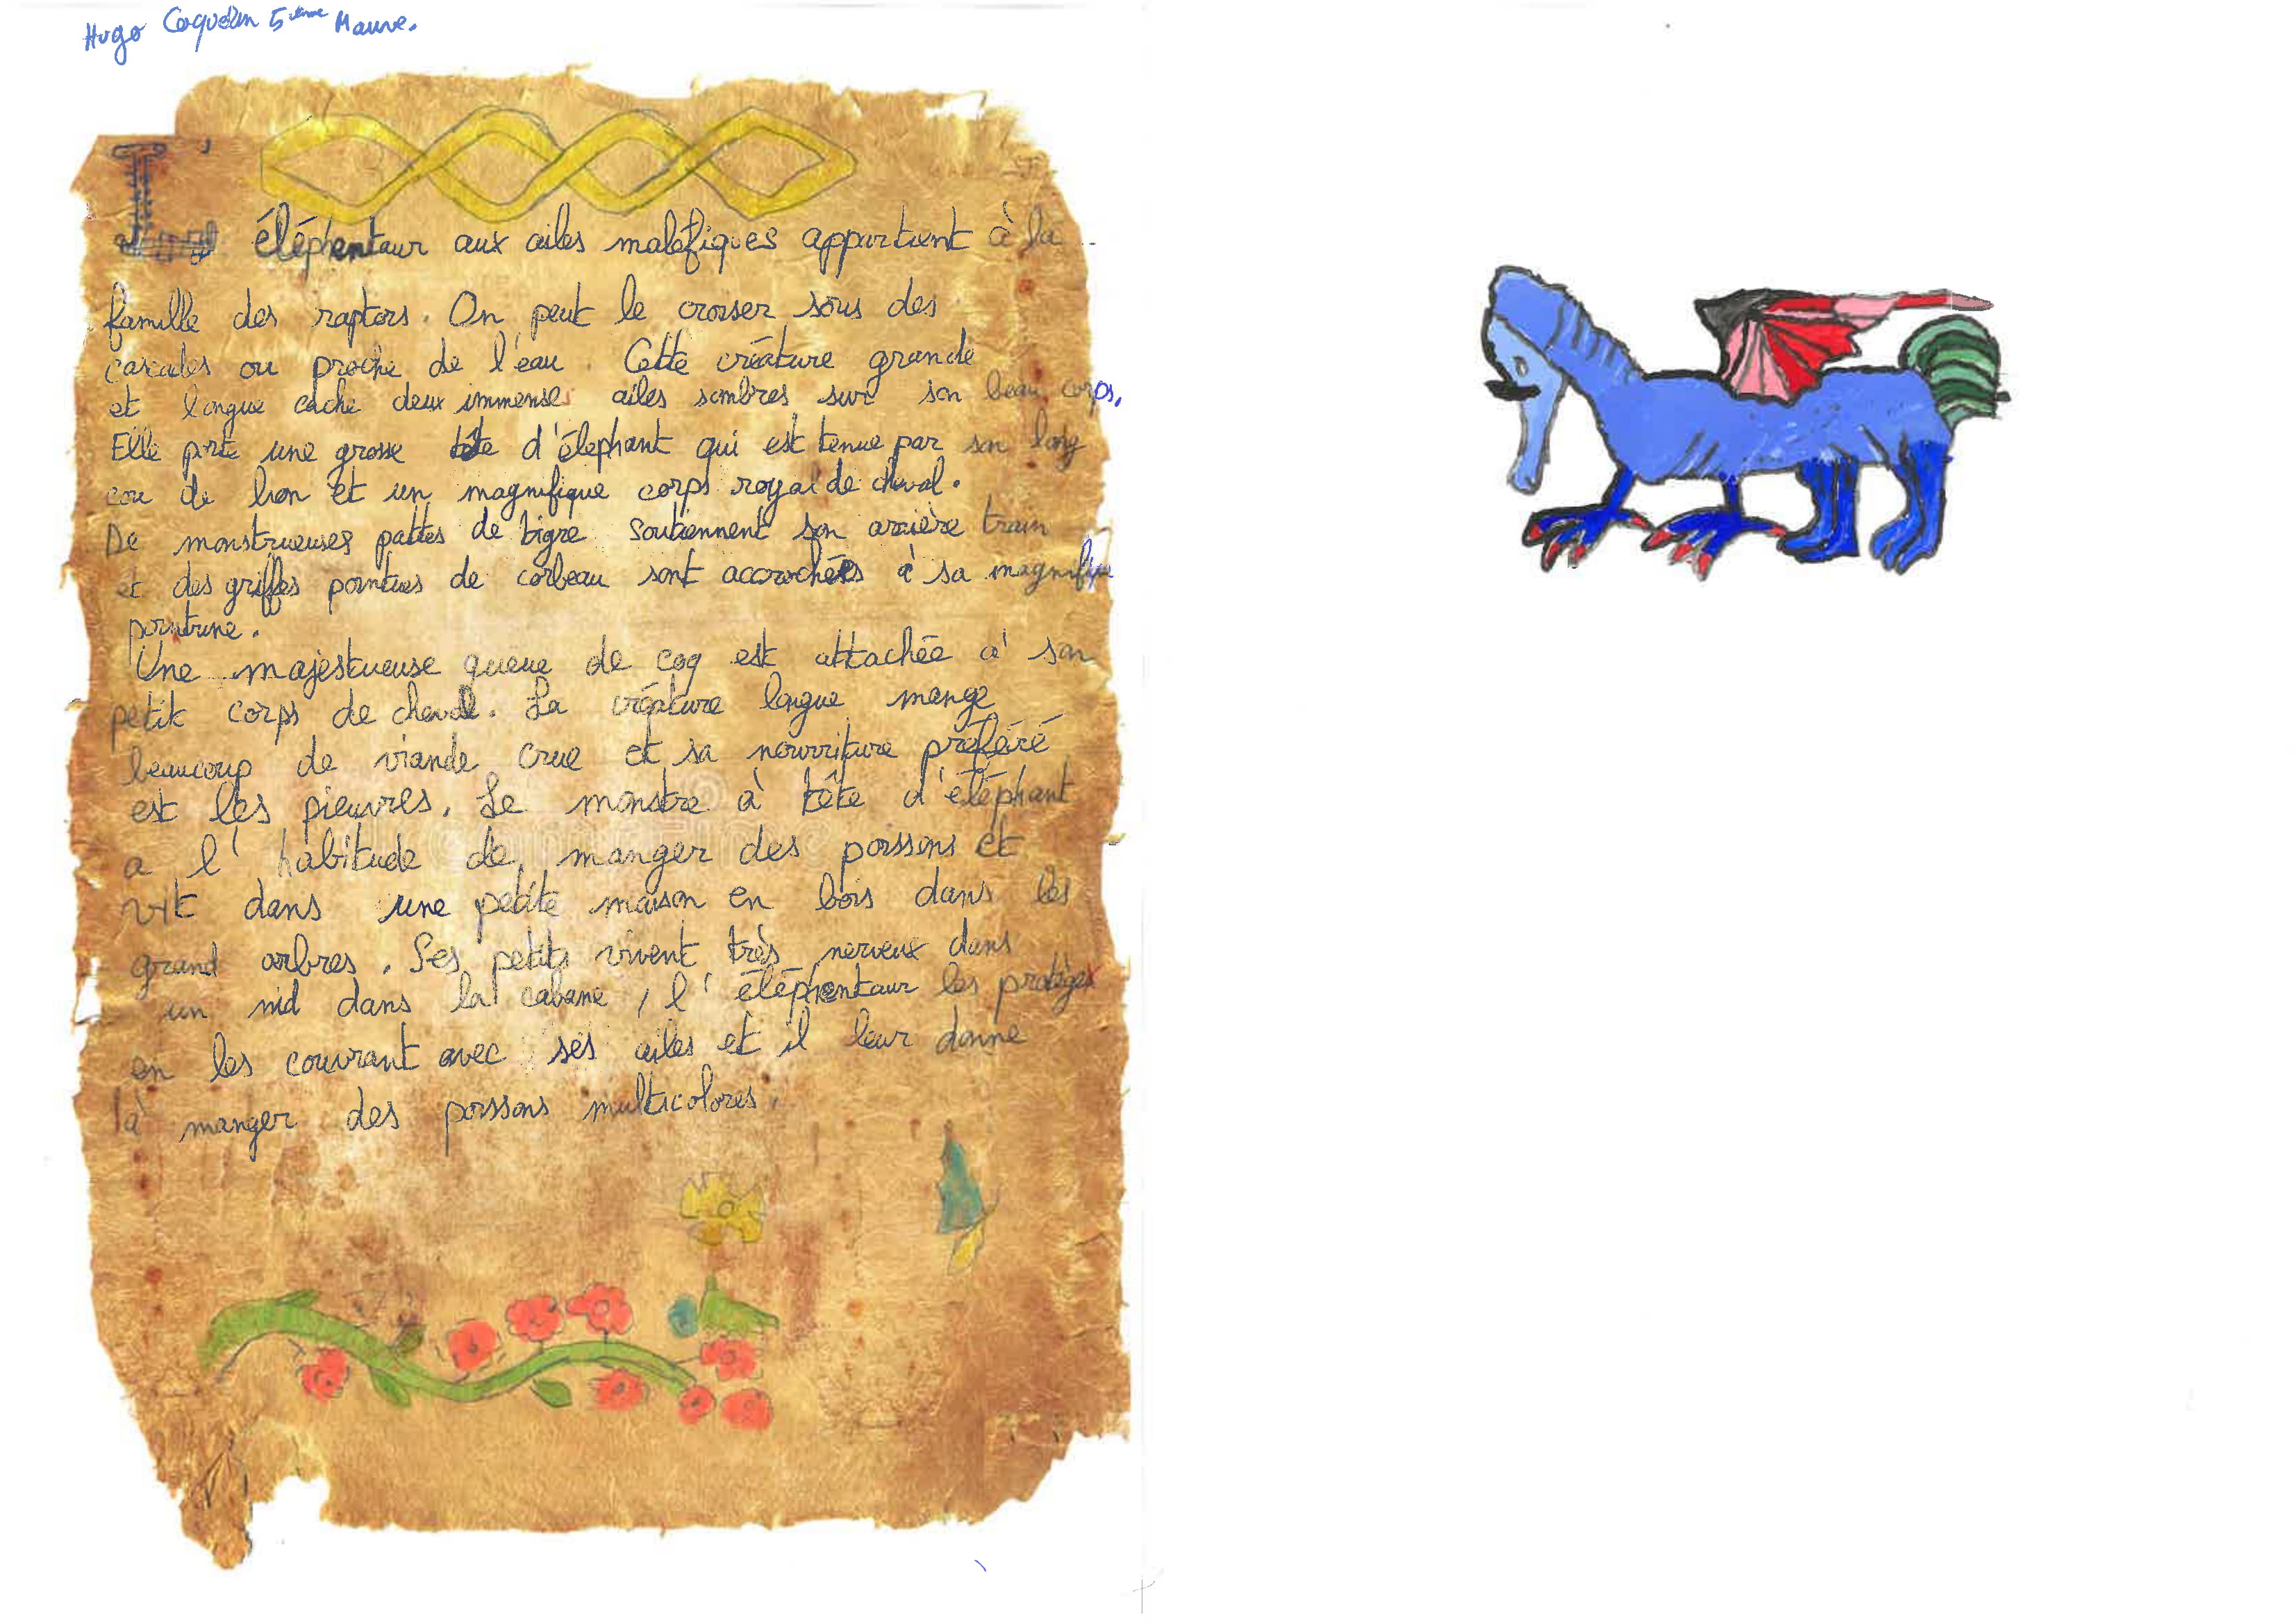 Hugo Coquelin 5ième Mauve.
L'
éléphentaur aux ailes maléfiques appartient à la
famille des raptors. On peut le croiser sous des
cascades ou proche de l'eau. Cette créature grande
et longue cache deux immenses ailes sombres sur son beau corps.
Elle porte une grosse tête d'élephant qui est tenue par son long
cou de lion et un magnifique corps royal de cheval.
De monstrueuses pattes de tigre soutiennent son arrière train
et des griffes pointues de corbeau sont accrochées à sa magnifique
pointrine.
Une majestueuse queue de coq est attachée à son
petit corps de cheval. La créature longue mange
beaucoup de viande crue et sa nourriture préféré
est les pieuvres. Le monstre à tête d'éléphant
a l'habitude de manger des poissons et
vit dans une petite maison en bois dans les
grand arbres. Ses petits vivent très nerveux dans
un nid dans la cabane, l'éléphentaur les protège
en les couvrant avec ses ailes et il leur donne
à manger des poissons multicolores.